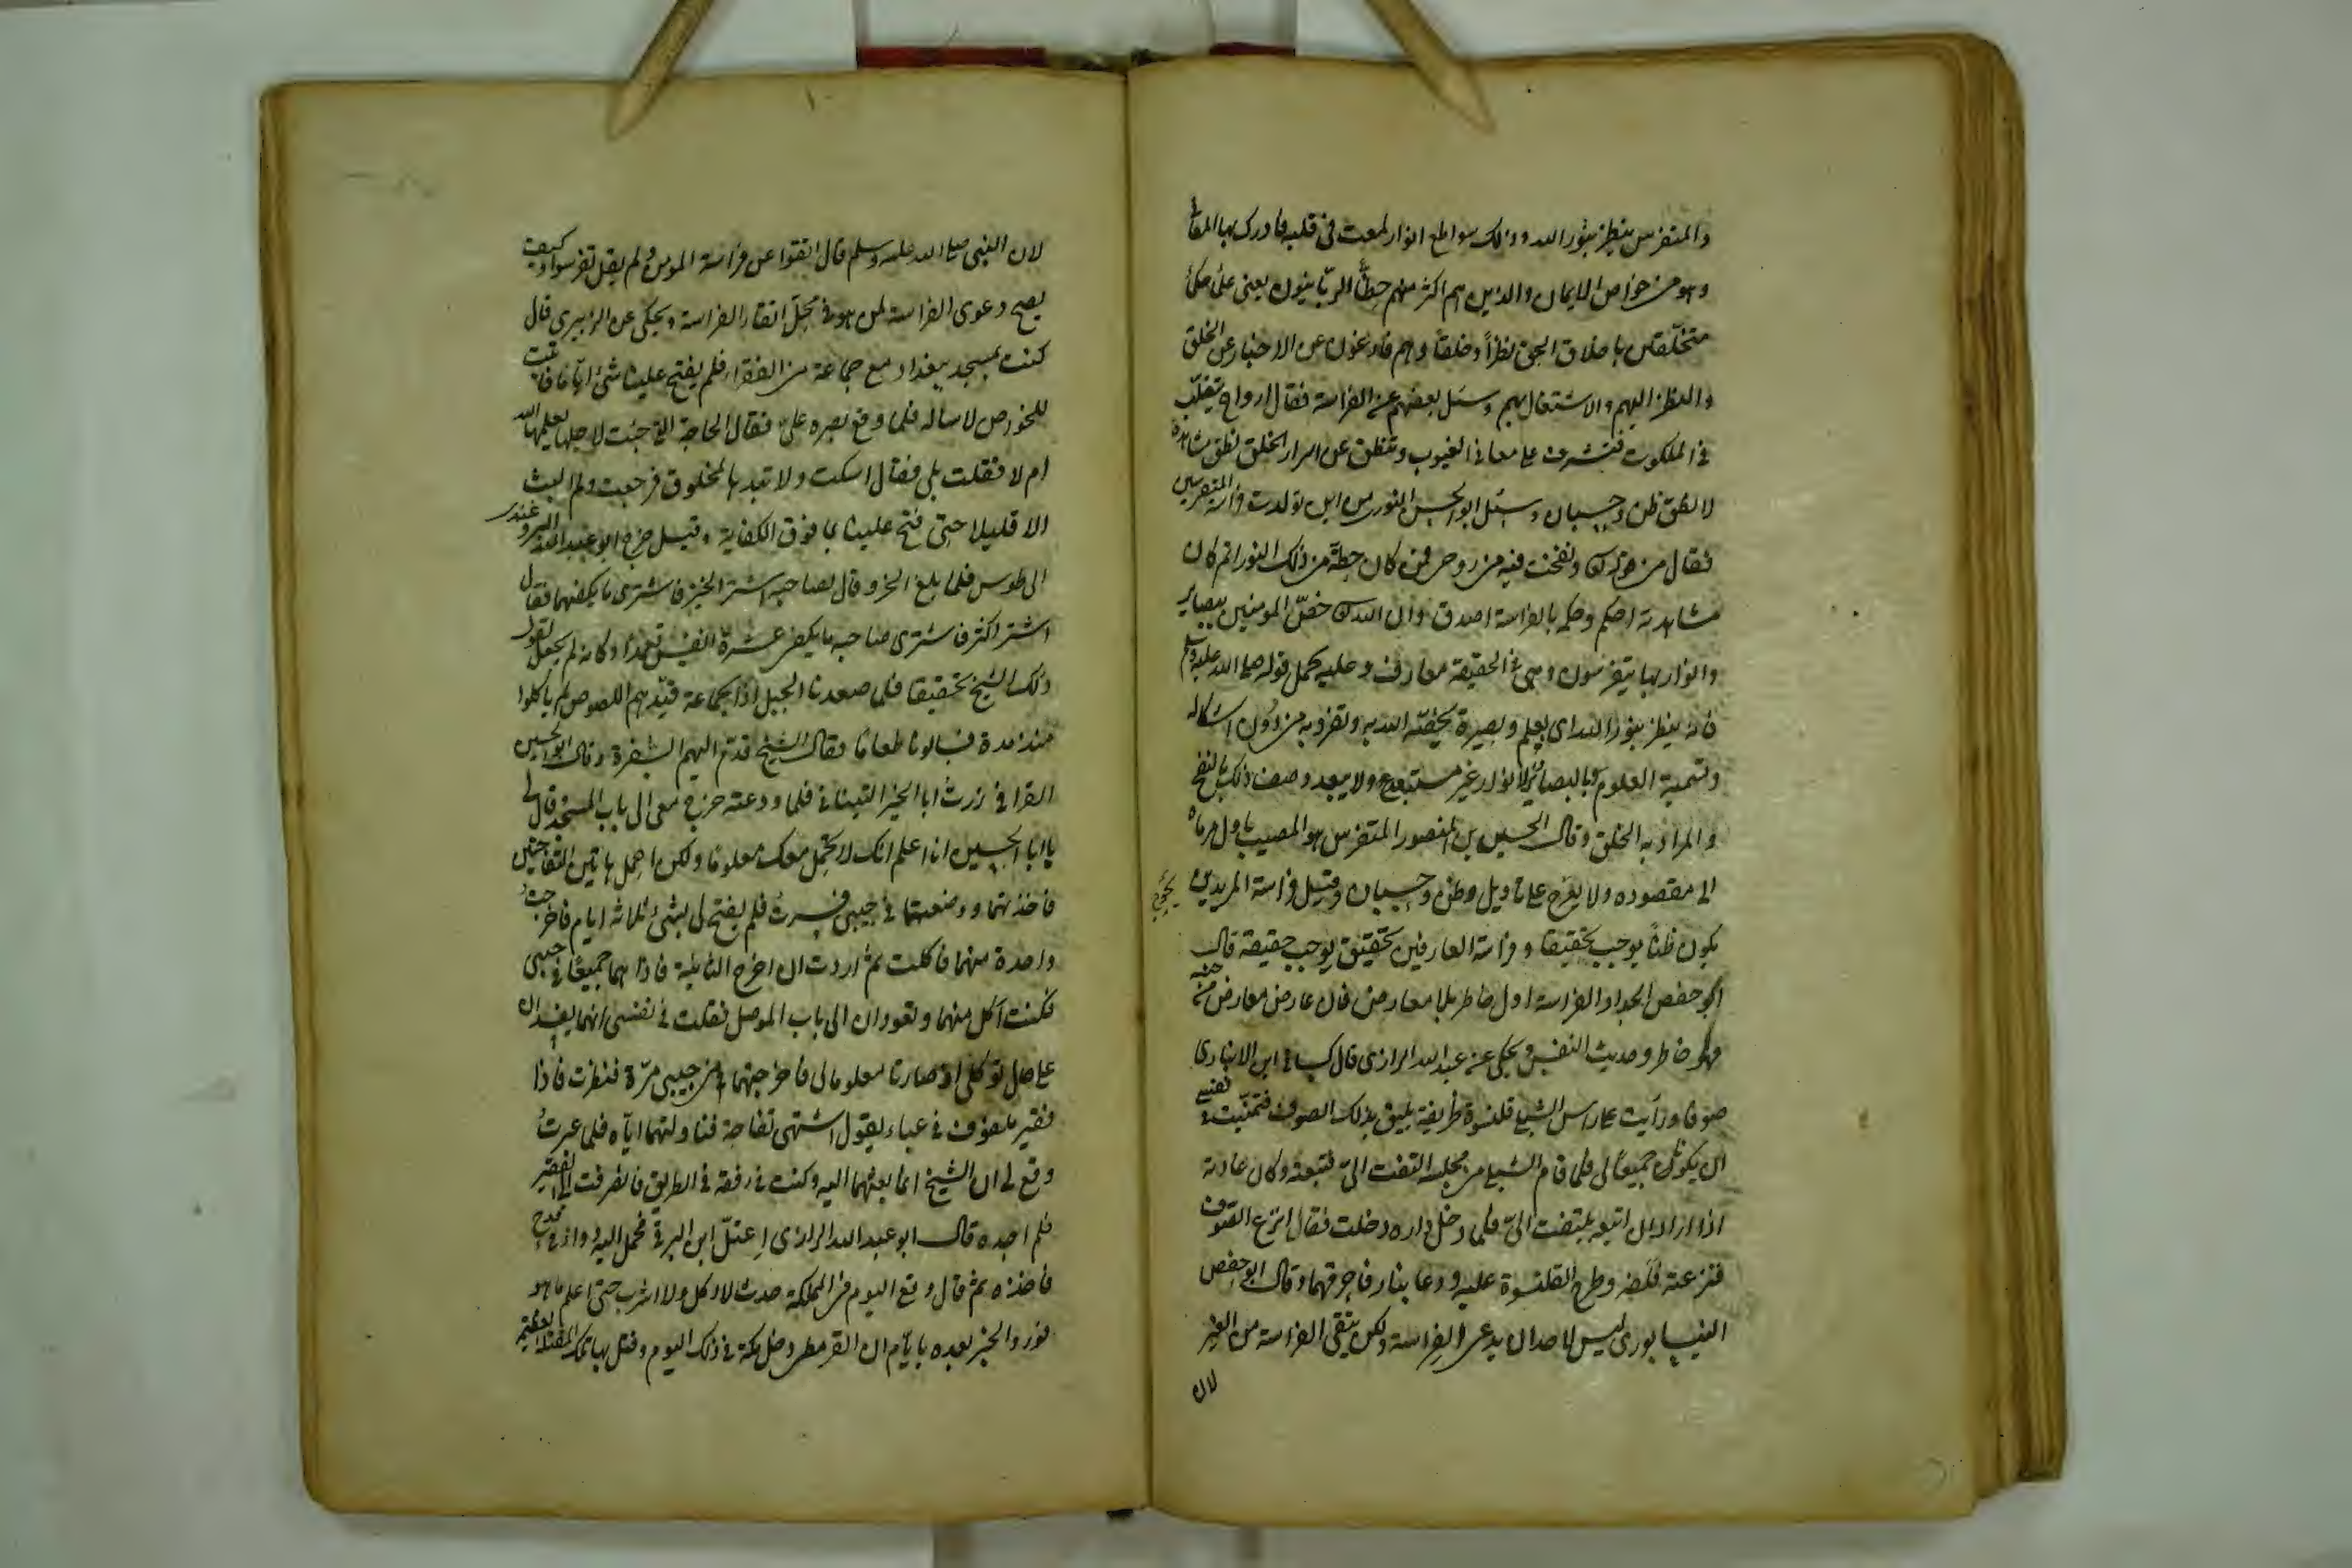 والمتفرس ينظر بنور الله وذلك سواطع انوار لمعت في قلبه فادرك بها المعاني
وهو من خواص الايمان والذين هم اكثر منهم حظّاً الربّانيون يعني علماء حكماء
متخلّقين باخلاق الحق نظراً وخلقاً وهم فارغون عن الاخبار عن الخلق
والنظر اليهم والاشتغال بهم وسئل بعضهم عن الفراسة فقال ارواح تتقلّب
في الملكوت فتشرف على معاني الغيوب وتنطق عن اسرار الخلق نطق مشاهدة
لا نطق ظن وحسبان وسئل ابو الحسن النوري من اين تولدت فراسة المتفرسين
فقال من قوله ونفخت فيه من روحي فمن كان حظه من ذلك النور اتم كان
مشاهدته احكم وحكمه بالفراسة اصدق وان الله خصّ المومنين ببصائر
وانوار بها يتفرسون وهي في الحقيقة معارف وعليه يحمل قوله صلى الله عليه وسلم
فانه ينظر بنور الله اى بعلم وبصيرة يخصّه الله به وتفرد به من دون اشكاله
وتسمية العلوم والبصائر انوار غير مستبدع ولا يبعد وصف ذلك بالنفخ
والمراد به الخلق وقال الحسين بن المنصور المتفرس هو المصيب باول مرماه
الى مقصوده ولا يعرّج على تاويل وظن وحسبان وقيل فراسة المريدين
يكون ظناً يوجب تحقيقا وفراسة العارفين تحقيق يوجب حقيقة قال
ابو حفص الحداد الفراسة اول خاطر بلا معارض فان عارض معارض من جنسه
فهو خاطر وحديث النفس ويحكى عن عبد الله الرازى قال كساني ابن الانباري
صوفا ورأيت على راس الشبلي قلنسوة ظريفة يليق بذلك الصوف فتمنّيت في نفسي
ان يكونا جميعاً لي فلما قام الشبلي من مجلسه التفت الىّ فتبعته وكان عادته
اذا اراد ان اتبعه يلتفت الىّ فلما دخل داره دخلت فقال انزع الصوف
فنزعته فلفّه وطرح القلنسوة عليه ودعا بنار فاحرقهما وقال ابو حفص
النيسابوري ليس لاحد ان يدعى الفراسة ولكن يتقى الفراسة من الغير
لان
لان النبي صلى الله عليه وسلم قال اتقوا عن فراسة المومن ولم يقل تفرسوا وكيف
يصح دعوى الفراسة لمن هو في محلّ اتقاء الفراسة ويحكى عن الزبيري قال
كنت بمسجد ببغداد مع جماعة من الفقراء فلم يفتح علينا شئ ايّاما فاتيت
للخواص لاساله فلما وقع بصره علىّ فقال الحاجة التي جئت لاجلها يعلمها الله
ام لا فقلت بلى فقال اسكت ولا تبدها لمخلوق فرجعت ولم البث
الا قليلا حتى فتح علينا بما فوق الكفاية وقيل خرج ابو عبد الله
الى طوس فلما بلغ الخرو قال لصاحبه اشتر الخبز فاشترى ما يكفيهما فقال
اشتر اكثر فاشترى صاحبه ما يكفي عشرة انفس تعمداً وكانه لم يجعل لقول
ذلك الشيخ تحقيقا فلما صعدنا الجبل اذا بجماعة قيّدهم اللصوص لم ياكلوا
منذ مدة فسالونا طعاما فقال الشيخ قدّم اليهم السفرة وقال ابو الحسين
القرافي زرت ابا الخير التيناتي فلما ودعته خرج معي الى باب المسجد قال لي
يا ابا الحسين انا اعلم انك لا تحمل معك معلوما ولكن احمل هاتين التفاحتين
فاخذتهما ووضعتهما في جيبي وسرت فلم يفتح لي بشئ ثلاثة ايام فاخرجت
واحدة منهما فاكلت ثم اردت ان اخرج الثانية فاذا هما جميعًا في جيبي
فكنت آكل منهما وتعودان الى باب الموصل فقلت في نفسي انهما يفسدان
على حال توكلى اذ صارتا معلوما لي فاخرجتهما من جيبي مرّة فنظرت فاذا
فقير ملفوف في عباء يقول اشتهى تفاحة فناولتهما ايّاه فلما عبرت
وقع لي ان الشيخ انما بعثهما اليه وكنت في رفقة في الطريق فانصرفت الى الفقير
فلم اجده قال ابو عبد الله الرازى اعتلّ ابن البرقي فحمل اليه دواء في قدح
فاخذه ثم قال وقع اليوم في المملكة حدث لا اكل ولا اشرب حتى اعلم ما هو
فورد الخبر بعده بايّام ان القرمطي دخل مكة في ذلك اليوم وقتل بها تلك المقتلة العظيمة